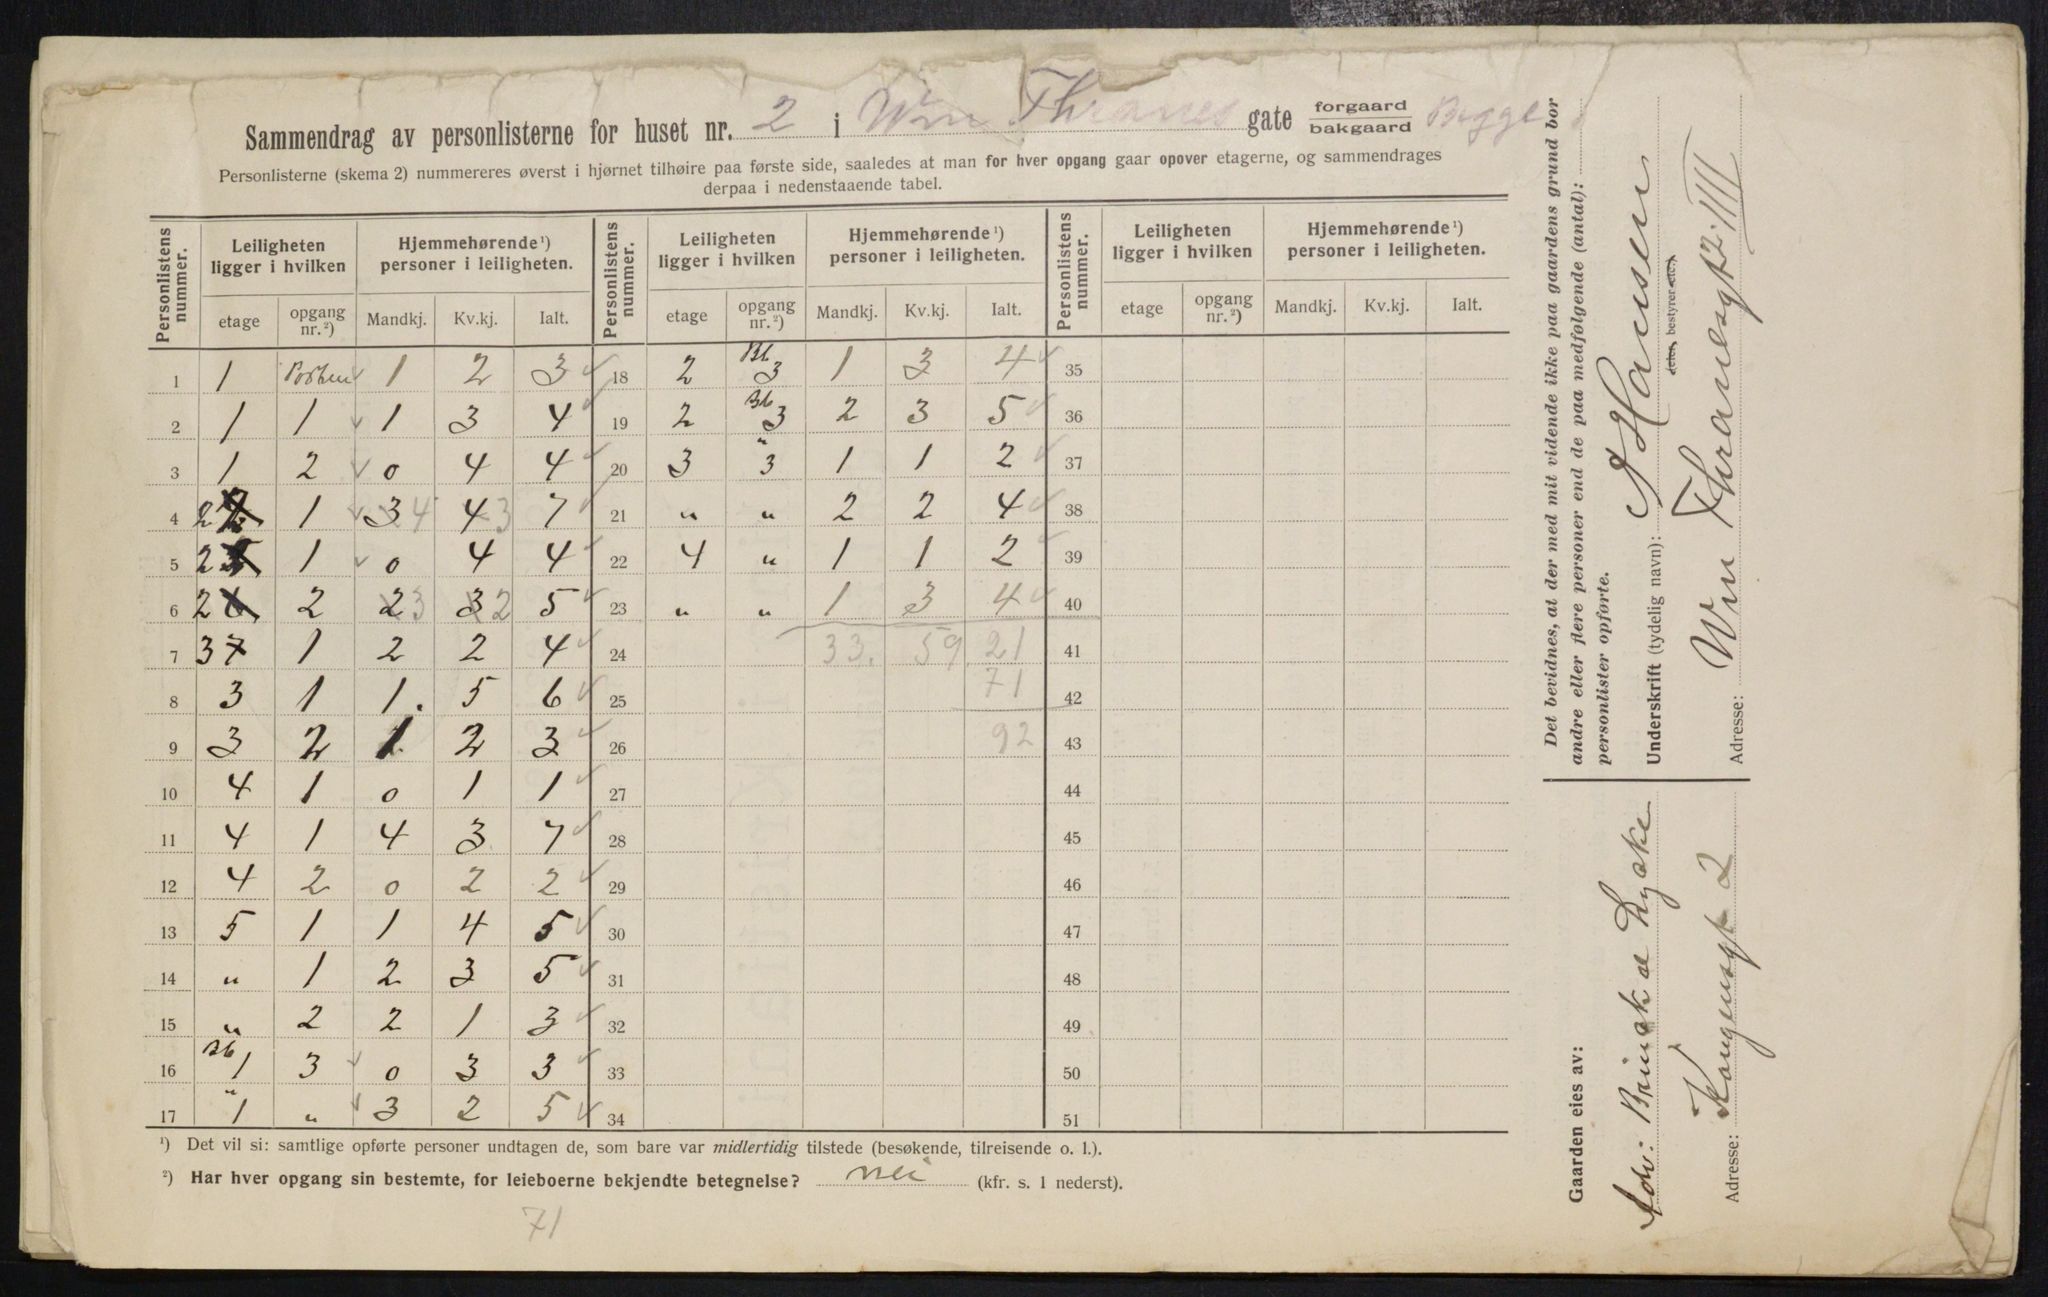 Sammendrag av personlisterne for huset nr. 2 i Wm Thranes gate forgaard bakgaard Begge
Personlisterne (skema 2) nummereres øverst i hjørnet tilhøire paa første side, saaledes at man for hver opgang gaar opover etagerne, og sammendrages
derpaa i nedenstaaende tabel.
Personlistens nummer. Leiligheten ligger i hvilken Hjemmehørende ¹) personer i leiligheten. Personlistens nummer. Leiligheten ligger i hvilken Hjemmehørende ¹) personer i leiligheten. Personlistens nummer. Leiligheten ligger i hvilken Hjemmehørende ¹) personer i leiligheten.
etage opgang nr. ²) Mandkj. Kv.kj. Ialt. etage opgang nr. ²) Mandkj. Kv.kj. Ialt. etage opgang nr. ²) Mandkj. Kv.kj. Ialt.
1 1 1 2 3 18 2 Bb 3 1 3 4 35
2 1 1 1 3 4 19 2 Bb 3 2 3 5 36
3 1 2 0 4 4 20 3 " 3 1 1 2 37
4 2 1 3 4 4 3 7 21 " " 2 2 4 38
5 2 1 0 4 4 22 4 " 1 1 2 39
6 2 2 2 3 3 2 5 23 " " 1 3 4 40
7 3 1 2 2 4 24 33. 59 21 41
8 3 1 1. 5 6 25 71 42
9 3 2 1 2 3 26 92 43
10 4 1 0 1 1 27 44
11 4 1 4 3 7 28 45
12 4 2 0 2 2 29 46
13 5 1 1 4 5 30 47
14 " 1 2 3 5 31 48
15 " 2 2 1 3 32 49
16 Bb 1 3 0 3 3 33 50
17 " 1 " 3 2 5 34 51
¹) Det vil si: samtlige opførte personer undtagen de, som bare var midlertidig tilstede (besøkende, tilreisende o. l.).
²) Har hver opgang sin bestemte, for leieboerne bekjendte betegnelse? nei (kfr. s. 1 nederst).
71
Det bevidnes, at der med mit vidende ikke paa gaardens grund bor
andre eller flere personer end de paa medfølgende (antal):
personlister opførte.
Underskrift (tydelig navn): A Hansen
eier, bestyrer etc.)
Adresse: Wm Thranesgt 2. IIII
Gaarden eies av:
Adv: Brinsk &
Adresse: Kongensgt 2